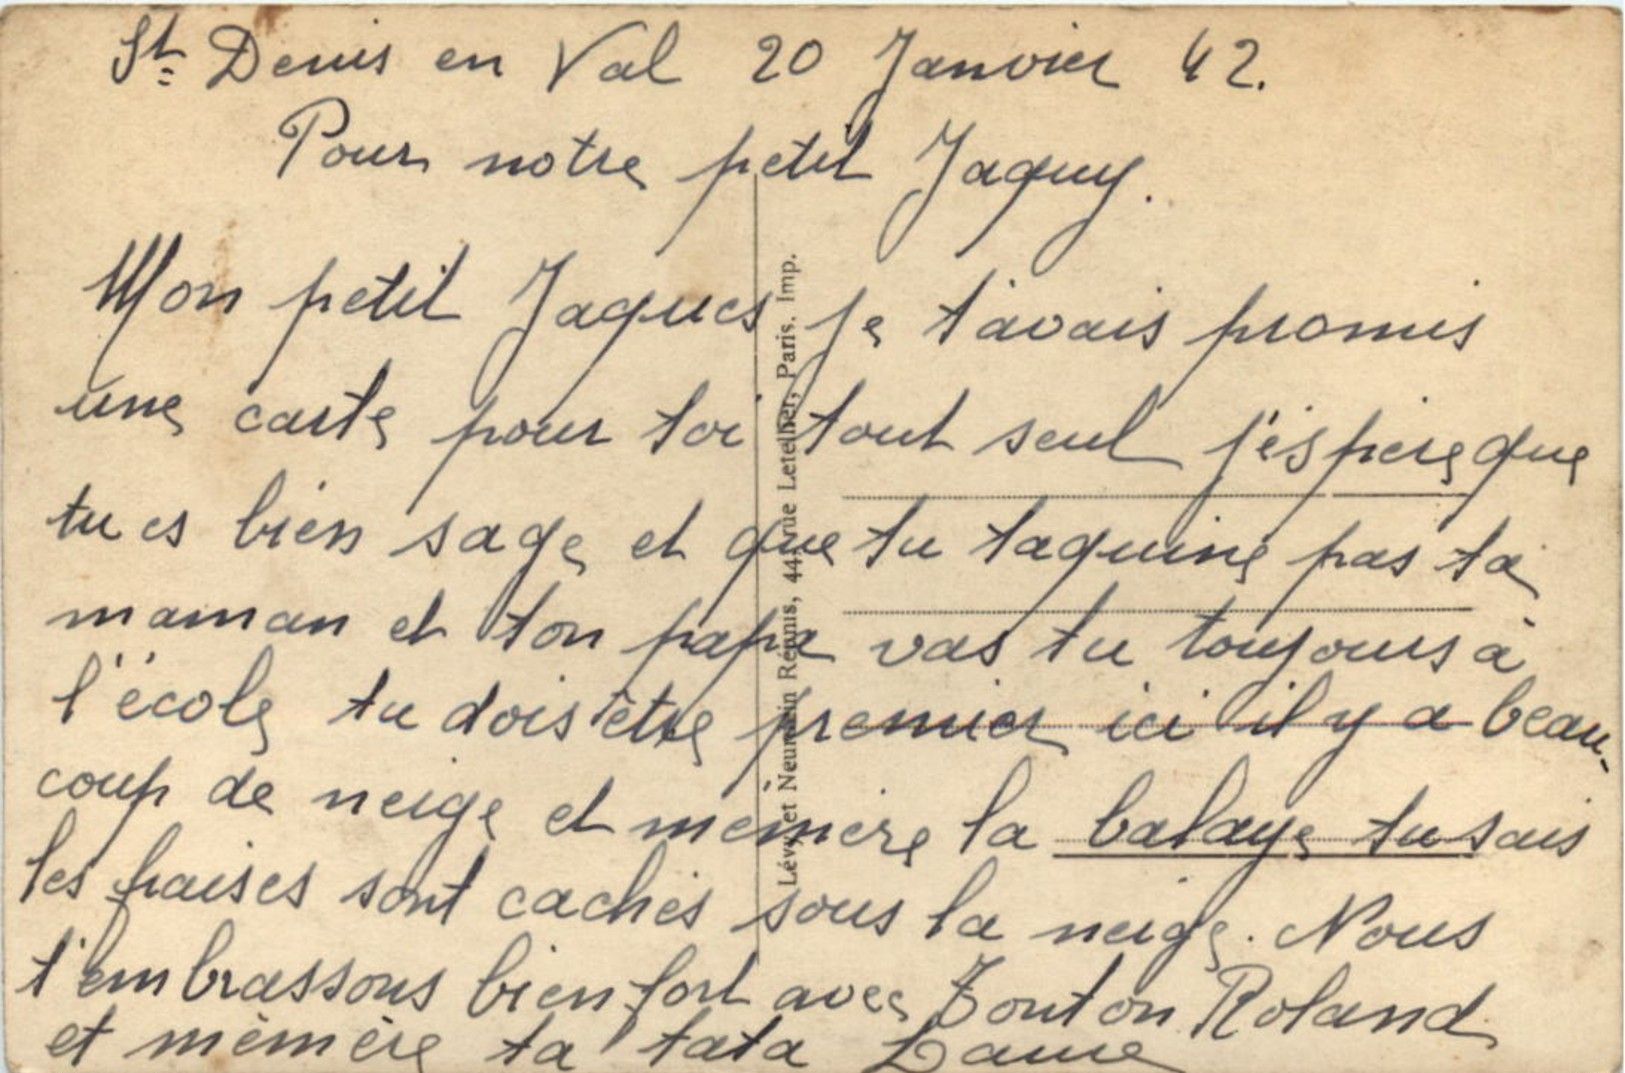 St Denis en Val 20 Janvier 42.
Pour notre petit Jaquy.
Mon petit Jaques je t'avais promis
une carte pour toi tout seul j'éspère que
tu es bien sage et que tu taquine pas ta
maman et ton papa vas tu toujours à
l'école tu dois être premier ici il y a beau-
coup de neige et mémère la balaye tu sais
les fraises sont cachés sous la neige. Nous
t'embrassons bien fort avec Tonton Roland
et mémère ta tata
Lévy et Neurdein Réunis, 44, rue Letellier, Paris. Imp.